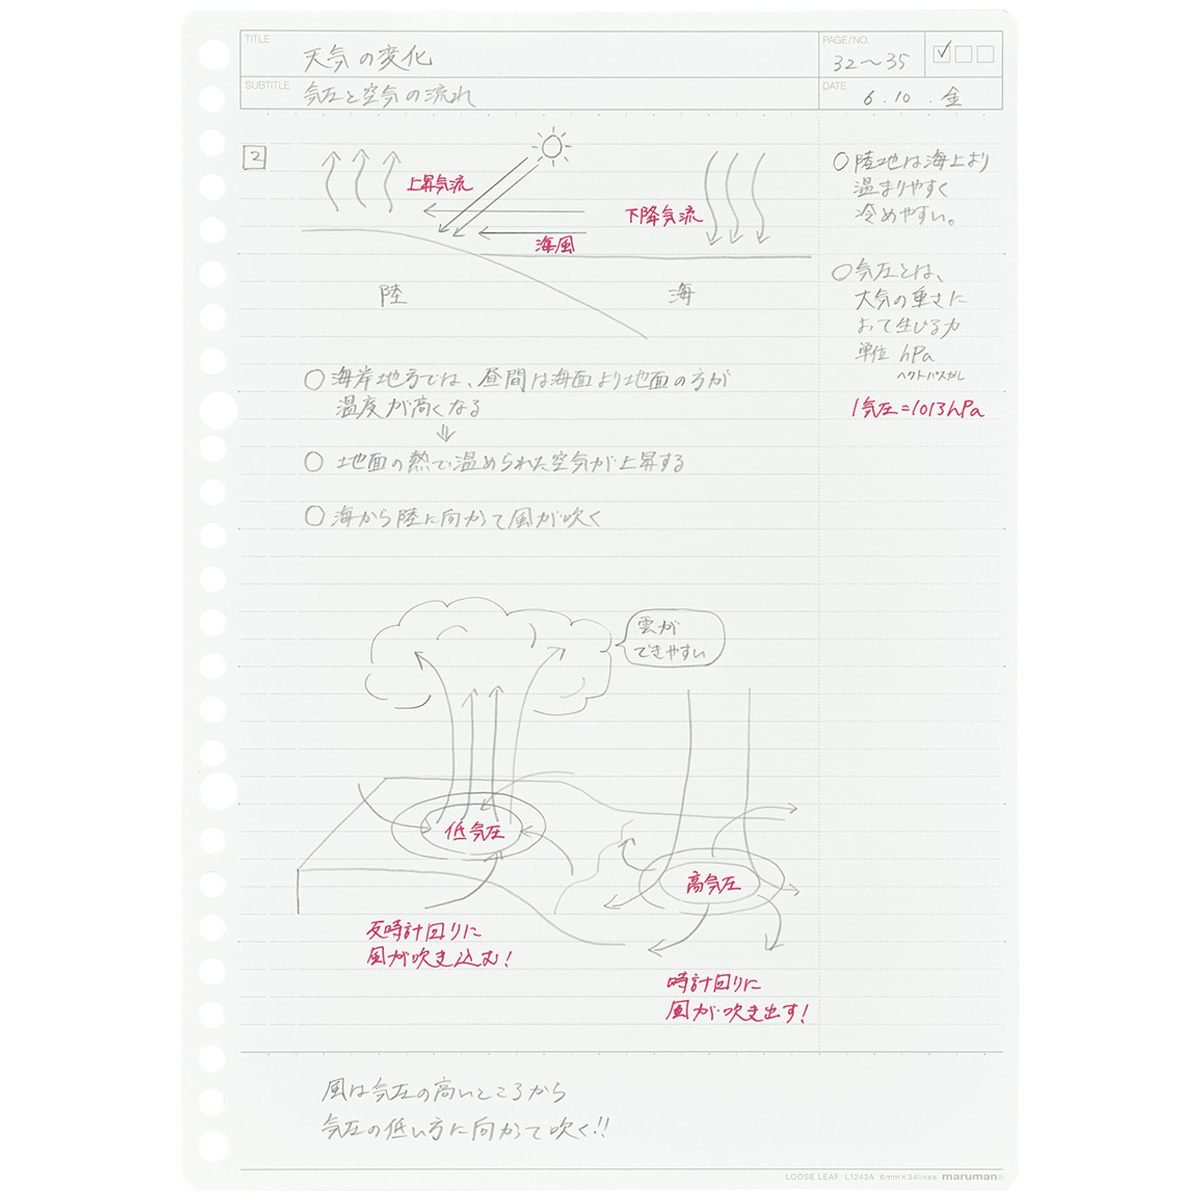 TITLE
天気の変化
PAGE/NO.
32〜35
SUBTITLE
気圧と空気の流れ
DATE
6.10.金
2
上昇気流
下降気流
海風
陸
海
○陸地は海上より
温まりやすく
冷めやすい。
○気圧とは、
大気の重さに
よって生じる力
単位 hPa
ヘクトパスカル
1気圧=1013hPa
○海岸地方では、昼間は海面より地面の方が
温度が高くなる
⇓
○地面の熱で温められた空気が上昇する
○海から陸に向かって風が吹く
雲が
できやすい
低気圧
高気圧
反時計回りに
風が吹き込む!
時計回りに
風が吹き出す!
風は気圧の高いところから
気圧の低い方に向かって吹く!!
LOOSE LEAF L1243A 6mm×34lines maruman®